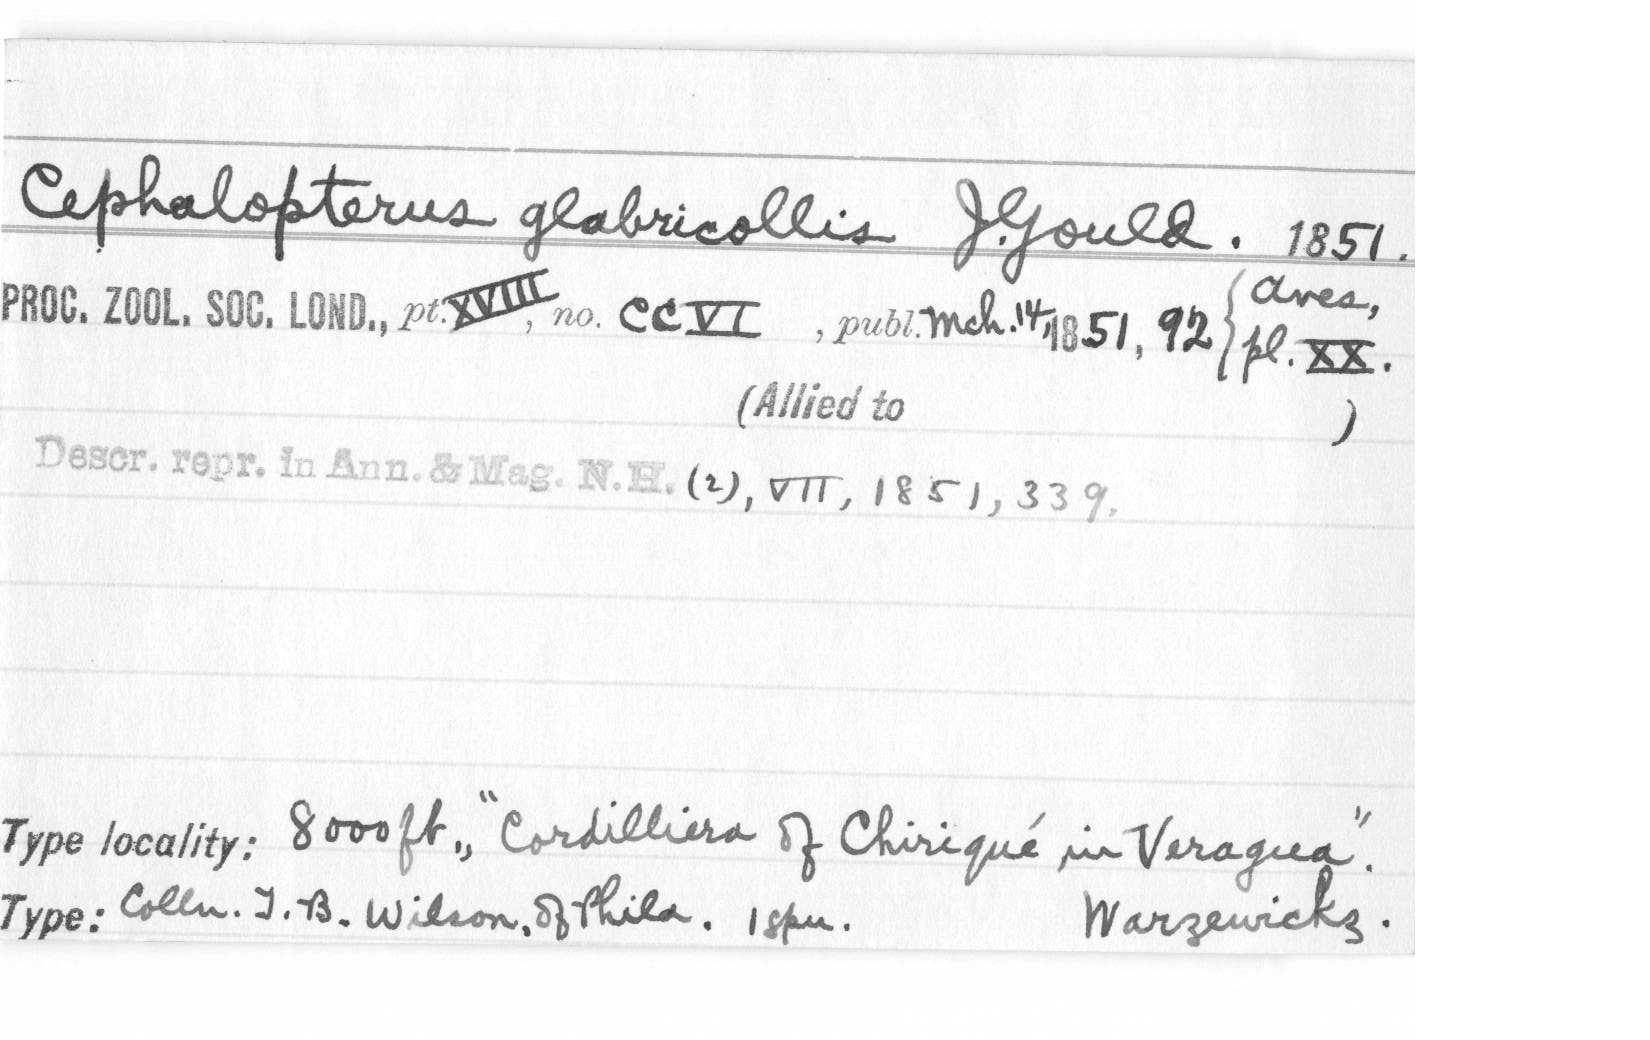 Cephalopterus glabricollis J. Gould. 1851.
PROC. ZOOL. SOC. LOND., pt. XVIII, no. CCVI, publ. Mch. 14, 1851, 92 { Aves, pl. XX.
(Allied to )
Descr. repr. in Ann. & Mag. N.H. (2), VII, 1851, 339.
Type locality: 8000 ft., "Cordilliera of Chiriqué in Veragua".
Type: Colln. T. B. Wilson, of Phila. 1 spm. Warzewickz.